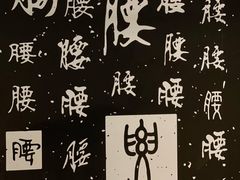 腰 腰 腰 腰
腰 腰 腰 腰
腰 腰 腰 腰
腰 腰 腰